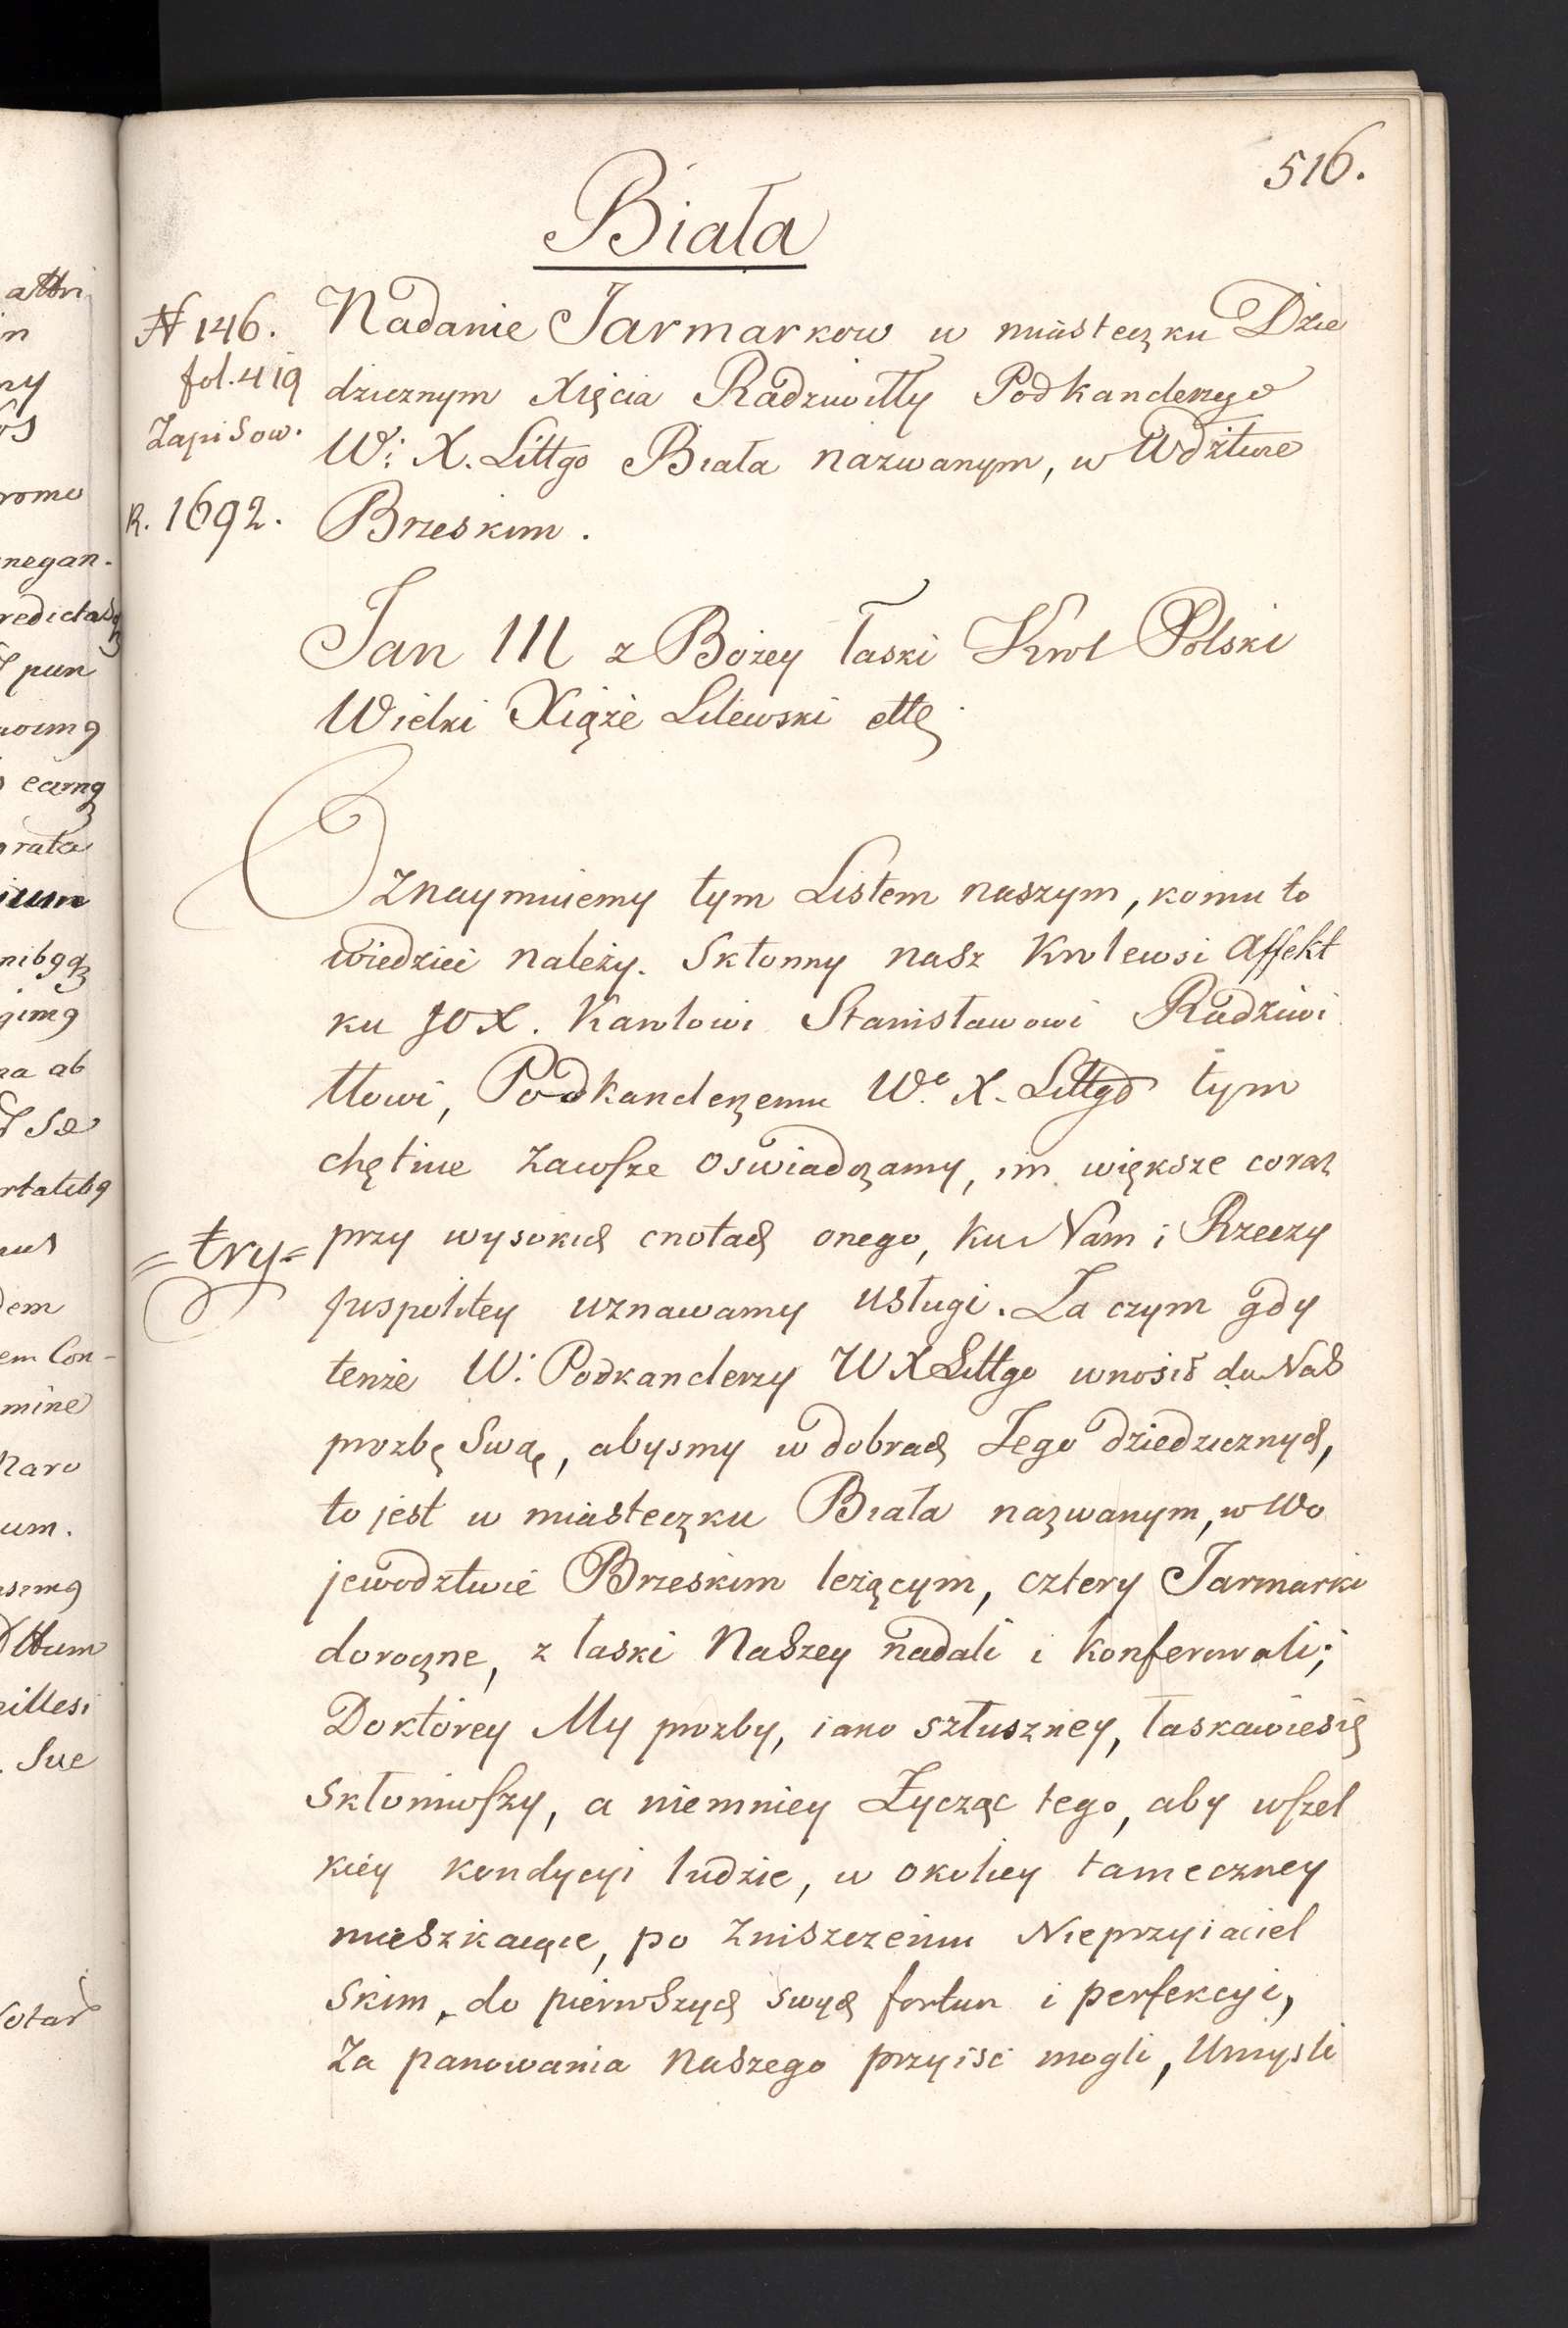 516.
Biała
N 146.
fol. 419
Zapisow.
R. 1692.
Nadanie Jarmarkow w miasteczku Dzie
dzicznym Xięcia Radziwiłły Podkanclerzego
W: X. Littgo Biała nazwanym, w Wdztwie
Brzeskim.
Jan III z Bożey łaski Krol Polski
Wielki Xiąże Litewski ettc
Oznaymuiemy tym Listem naszym, komu to
wiedzieć należy. Skłonny nasz Krolewsi Affekt
ku JOX. Karolowi Stanisławowi Radziwi
łłowi, Podkanclerzemu W. X. Littgo tym
chętnie zawsze oswiadczamy, im większe coraz
=try=
przy wysokich cnotach onego, ku Nam i Rzeczy
puspolitey uznawamy usługi. Za czym gdy
tenże W: Podkanclerzy W X Littgo wnosił do Nas
prozbę Swą, abysmy w dobrach Jego dziedzicznych,
to jest w miasteczku Biała nazwanym, w Wo
jewodztwie Brzeskim leżącym, cztery Jarmarki
doroczne, z łaski Naszey nadali i konferowali;
Doktórey My prozby, iako szłuszney, łaskawiesię
Skłoniwszy, a niemniey Życząc tego, aby wszel
kiey kondycyi ludzie, w okolicy tameczney
mieszkaiące, po Zniszczeniu Nieprzyiaciel
skim, do pierwszych swych fortun i perfekcyi,
Za panowania Naszego przyisć mogli, Umysli
attri
in
ny
romo
negan.
redictasq
pun
earnq
grata
nibqq
qimq
na ab
rtatibq
dem
em Con-
mine
Naro
um.
ttum
Sue